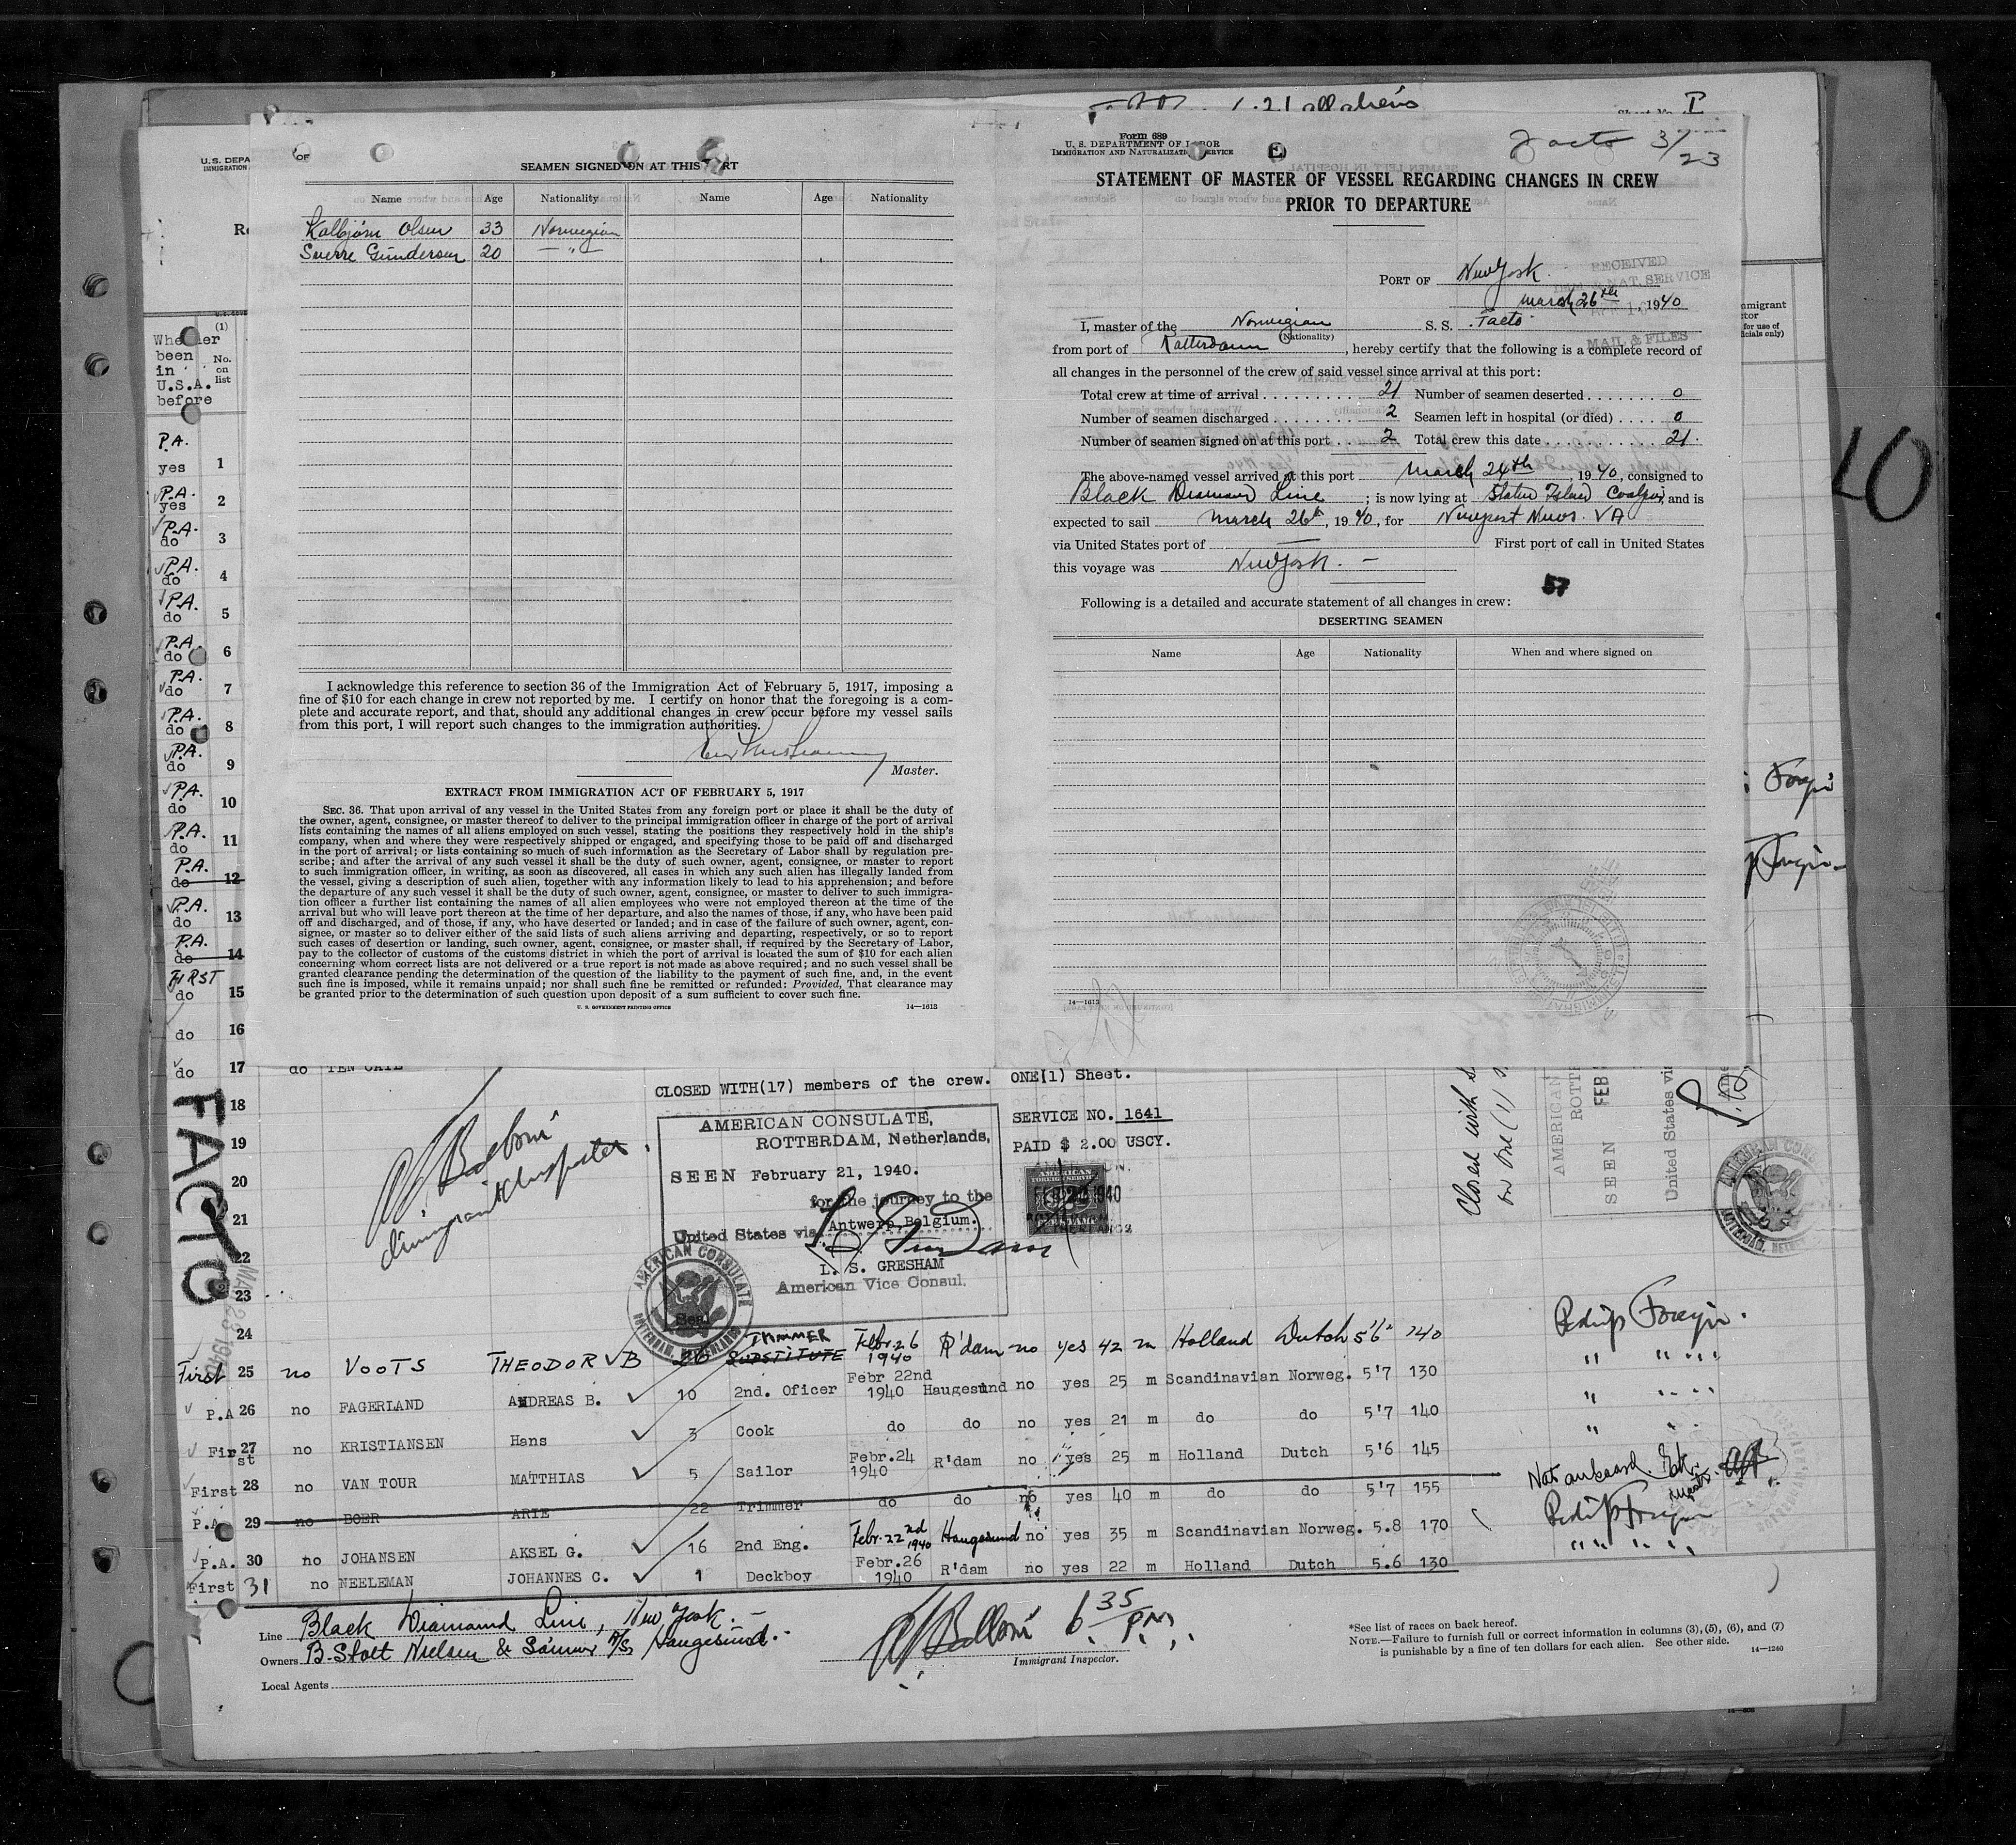 1-21 all aliens
I
U.S. DEPA
IMMIGRATION
OF
SEAMEN SIGNED ON AT THIS PORT
Name Age Nationality Name Age Nationality
Kolbjörn Olsen 33 Norwegian
Sverre Gundersen 20 — " —
I acknowledge this reference to section 36 of the Immigration Act of February 5, 1917, imposing a
fine of $10 for each change in crew not reported by me. I certify on honor that the foregoing is a com-
plete and accurate report, and that, should any additional changes in crew occur before my vessel sails
from this port, I will report such changes to the immigration authorities.
Master.
EXTRACT FROM IMMIGRATION ACT OF FEBRUARY 5, 1917
SEC. 36. That upon arrival of any vessel in the United States from any foreign port or place it shall be the duty of
the owner, agent, consignee, or master thereof to deliver to the principal immigration officer in charge of the port of arrival
lists containing the names of all aliens employed on such vessel, stating the positions they respectively hold in the ship's
company, when and where they were respectively shipped or engaged, and specifying those to be paid off and discharged
in the port of arrival; or lists containing so much of such information as the Secretary of Labor shall by regulation pre-
scribe; and after the arrival of any such vessel it shall be the duty of such owner, agent, consignee, or master to report
to such immigration officer, in writing, as soon as discovered, all cases in which any such alien has illegally landed from
the vessel, giving a description of such alien, together with any information likely to lead to his apprehension; and before
the departure of any such vessel it shall be the duty of such owner, agent, consignee, or master to deliver to such immigra-
tion officer a further list containing the names of all alien employees who were not employed thereon at the time of the
arrival but who will leave port thereon at the time of her departure, and also the names of those, if any, who have been paid
off and discharged, and of those, if any, who have deserted or landed; and in case of the failure of such owner, agent, con-
signee, or master so to deliver either of the said lists of such aliens arriving and departing, respectively, or so to report
such cases of desertion or landing, such owner, agent, consignee, or master shall, if required by the Secretary of Labor,
pay to the collector of customs of the customs district in which the port of arrival is located the sum of $10 for each alien
concerning whom correct lists are not delivered or a true report is not made as above required; and no such vessel shall be
granted clearance pending the determination of the question of the liability to the payment of such fine, and, in the event
such fine is imposed, while it remains unpaid; nor shall such fine be remitted or refunded: Provided, That clearance may
be granted prior to the determination of such question upon deposit of a sum sufficient to cover such fine.
U. S. GOVERNMENT PRINTING OFFICE 14—1613
Form 689
U. S. DEPARTMENT OF LABOR
IMMIGRATION AND NATURALIZATION SERVICE
Facto 3/23
STATEMENT OF MASTER OF VESSEL REGARDING CHANGES IN CREW
PRIOR TO DEPARTURE
PORT OF New York
RECEIVED
NAT. SERVICE
March 26th, 1940
MAIL & FILES
I, master of the Norwegian S. S. Facto
(Nationality)
from port of Rotterdam, hereby certify that the following is a complete record of
all changes in the personnel of the crew of said vessel since arrival at this port:
Total crew at time of arrival 21 Number of seamen deserted 0
Number of seamen discharged 2 Seamen left in hospital (or died) 0
Number of seamen signed on at this port 2 Total crew this date 21
The above-named vessel arrived at this port March 24th, 1940, consigned to
Black Diamond Line; is now lying at Staten Island Coalpier, and is
expected to sail March 26th, 1940, for Newport News. VA
via United States port of — First port of call in United States
this voyage was New York. —
57
Following is a detailed and accurate statement of all changes in crew:
DESERTING SEAMEN
Name Age Nationality When and where signed on
14—1613
(1)
Whether
been
in
U.S.A.
before
No.
on
list
mmigrant
tor
for use of
ficials only)
P.A.
yes 1
P.A.
yes 2
P.A.
do 3
P.A.
do 4
P.A.
do 5
P.A.
do 6
P.A.
do 7
P.A.
do 8
P.A.
do 9
P.A.
do 10
P.A.
do 11
P.A.
do 12
P.A.
do 13
P.A.
do 14
FIRST
do 15
do 16
do 17 do TEN CATE
18
19
20
21
22
23
24
FACTO
MAR 23 1940
40
CLOSED WITH(17) members of the crew. ONE(1) Sheet.
SERVICE NO. 1641
PAID $ 2.00 USCY.
AMERICAN CONSULATE,
ROTTERDAM, Netherlands,
SEEN February 21, 1940.
for the journey to the
United States via Antwerp, Belgium.
L. S. GRESHAM
American Vice Consul.
Seal
AMERICAN CONSULATE
ROTTERDAM, NETHERLANDS
AMERICAN
FOREIGN SERVICE
FEE STAMP
Immigrant Inspector
Closed with
on one (1) s
AMERICAN
ROTTE
SEEN FEB
United States via
First 25 no VOOTS THEODOR B 26 SUBSTITUTE TRIMMER Febr. 26 1940 R'dam no yes 42 m Holland Dutch 5'6" 140 Reship Foreign.
P.A 26 no FAGERLAND ANDREAS B. 10 2nd. Oficer Febr 22nd 1940 Haugesund no yes 25 m Scandinavian Norweg. 5'7 130 " " " "
First 27 no KRISTIANSEN Hans 3 Cook do do no yes 21 m do do 5'7 140 " " " "
First 28 no VAN TOUR MATTHIAS 5 Sailor Febr.24 1940 R'dam no yes 25 m Holland Dutch 5'6 145
P.A. 29 no BOER ARIE 22 Trimmer do do no yes 40 m do do 5'7 155 Not onboard.
P.A. 30 no JOHANSEN AKSEL G. 16 2nd Eng. Febr-22nd 1940 Haugesund no yes 35 m Scandinavian Norweg. 5.8 170 Reship Foreign
First 31 no NEELEMAN JOHANNES C. 1 Deckboy Febr.26 1940 R'dam no yes 22 m Holland Dutch 5.6 130 " " " "
Line Black Diamond Line, New York.
Owners B. Stolt Nielsen & Sönner A/S, Haugesund.
Local Agents
6 35 P.M.
Immigrant Inspector.
*See list of races on back hereof.
NOTE.—Failure to furnish full or correct information in columns (3), (5), (6), and (7)
is punishable by a fine of ten dollars for each alien. See other side. 14—1240